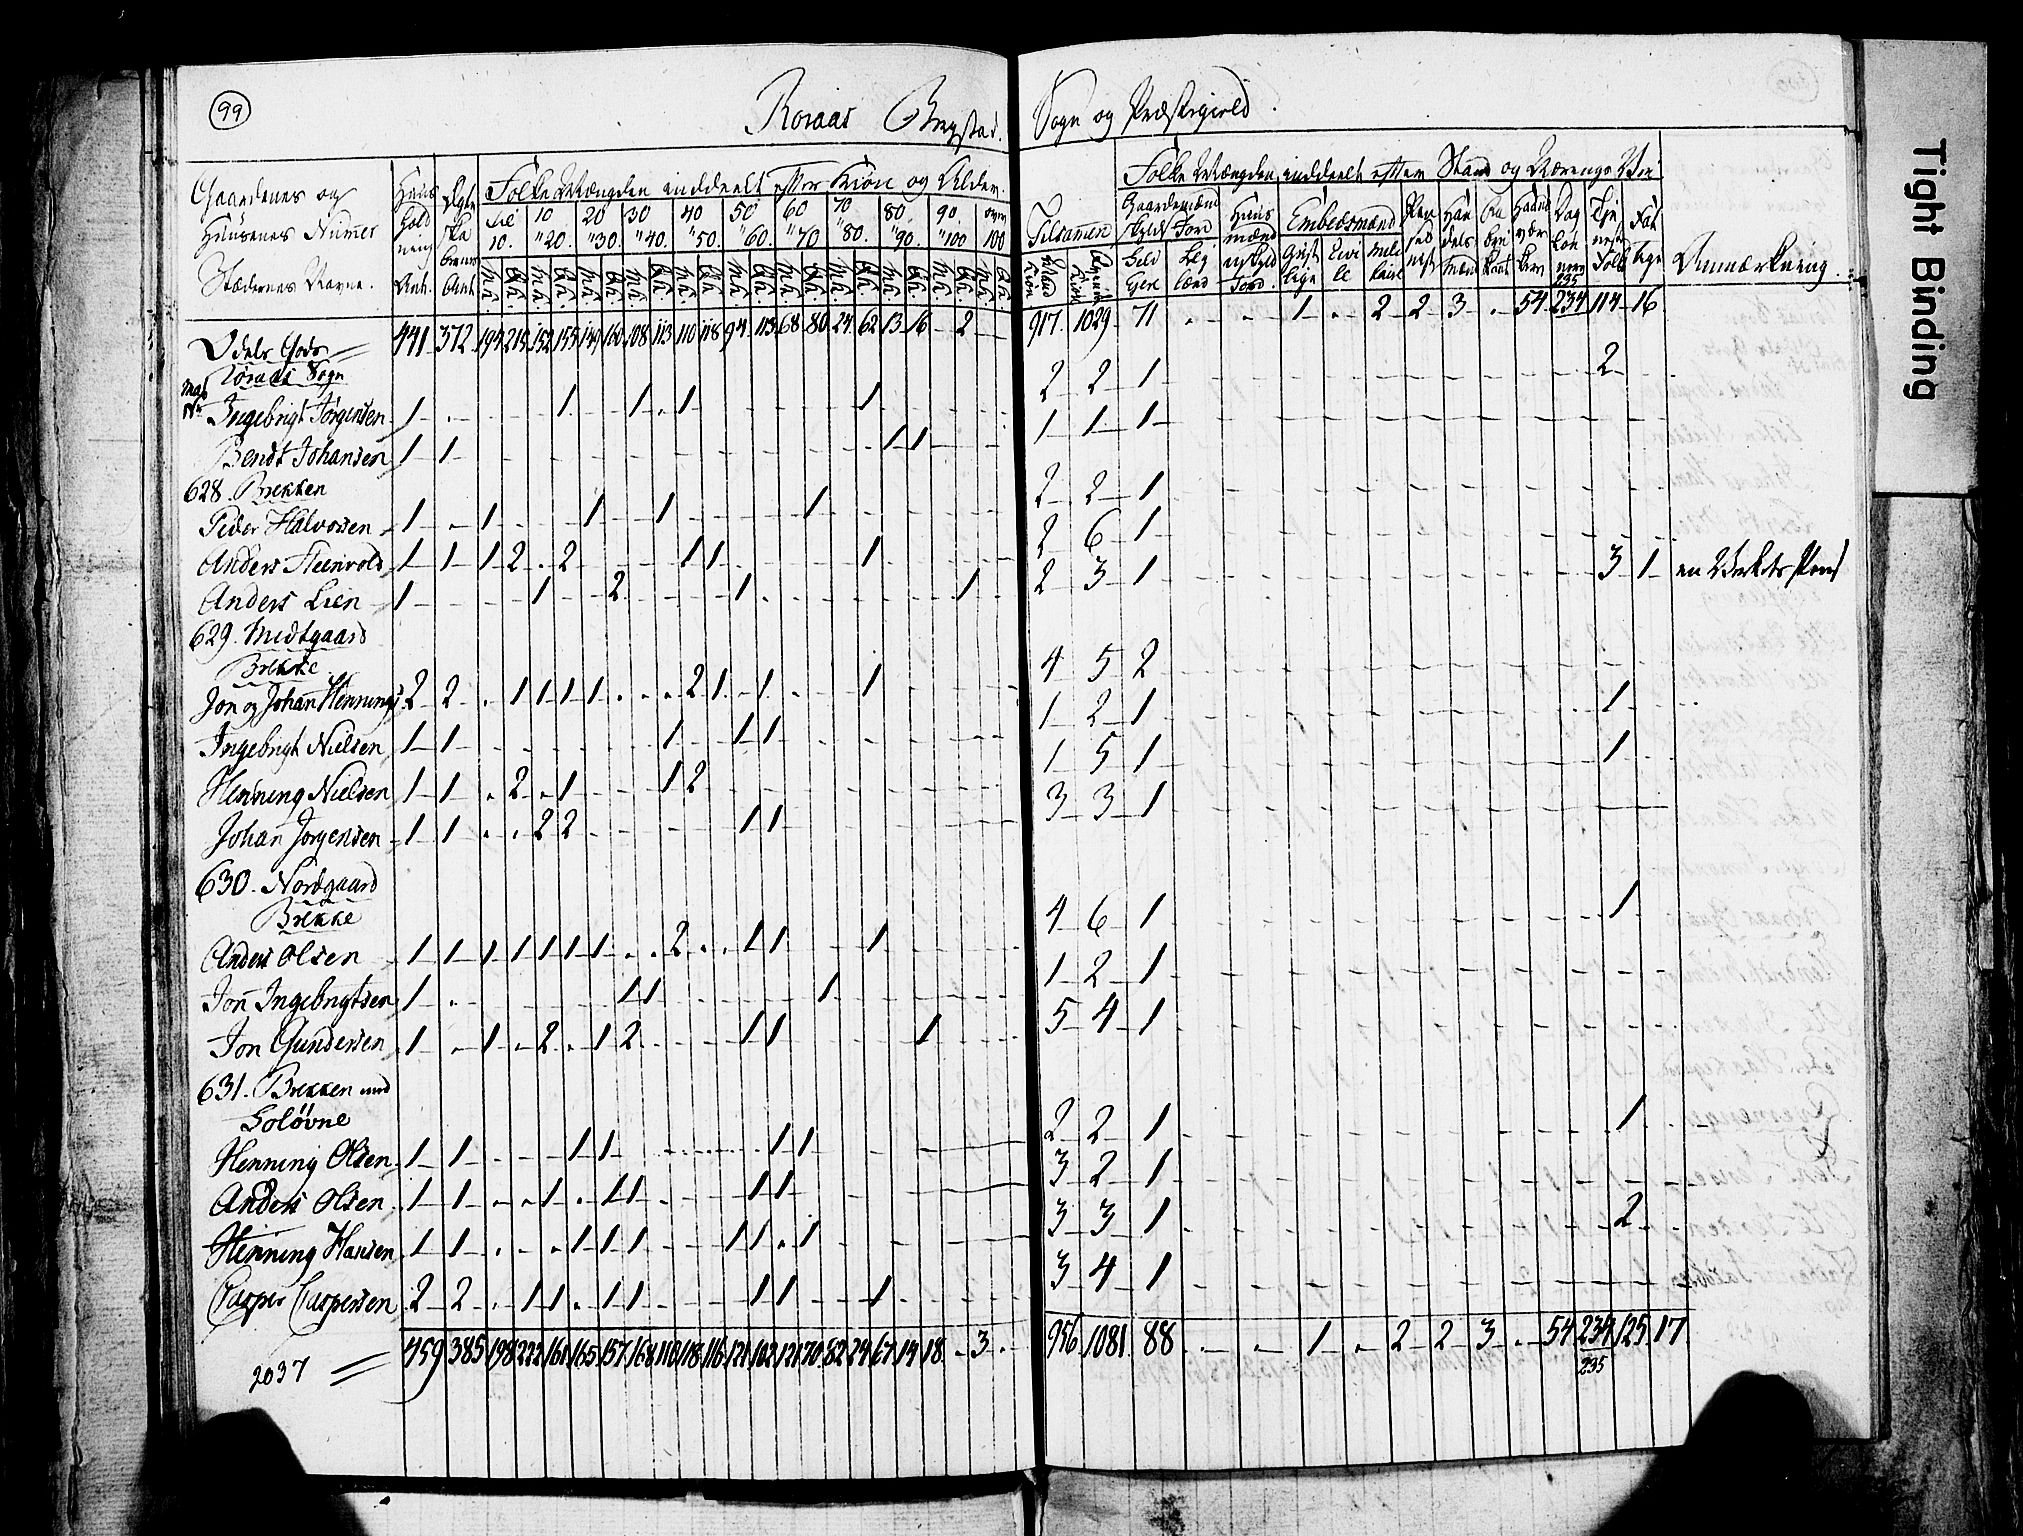 99
Roraas Bergstad. Sogn og Præstegield.
Gaardenes og
Huusenes Numer
Stædernes Navne.
Huus
hold
ning
Ant.
Ægte
ska
berne
Ant
Folke Mængden inddeelt efter Kiøn og Alder.
til 10. 10 " 20. 20 " 30. 30 " 40. 40 " 50. 50 " 60. 60 " 70 70 " 80. 80 " 90. 90 " 100 over 100
M.k. Q.k. M.k. Q.k. M.k. Q.k. M.k. Q.k. M.k. Q.k. M.k. Q.k. M.k. Q.k. M.k. Q.k. M.k. Q.k. M.k. Q.k. M.k. Q.k.
Tilsamen
Mand Kiøn
Qvinde Kiøn
Folke Mængden inddeelt efter Stand og Nærings Vei
Gaardemænd
skyld Jord
Selv Eyere
Leylænd
Huus mænd
uskyld Jord
Embedsmænd
Geistlige
Civile
Militaire
Pensionist
Handelsmænd
Haandværkere
Dag Lønnere
Tjeneste Folk
Fattige
Anmærkning.
235
Odels Gods 441 372 194 215 152 155 149 160 108 113 110 118 94 113 68 80 24 62 13 16 - 2 - 917. 1029 71 . . 1 . 2 2 3 . 54 234 114 16
Røraas Sogn
Mat No Ingebrigt Jørgensen 1 . 1 1 1 1 2 2 1 2
Bendt Johansen 1 1 1 1 1 1 1
628. Brekken
Peder Halvorsen 1 . 1 1 1 1 2 2 1
Anders Steenvold 1 1 1 2 . 2 1 1 1 2 6 1
Anders Lien 1 1 2 1 1 2 3 1 3 1 en Verkets Pens
629. Midtgaard
Brekke
Jon og Johan Hennings 2 2 . 1 1 1 1 . . . 2 1 . 1 1 4 5 2
Ingebrigt Nielsen 1 1 1 1 1 1 2 1 1
Henning Nielsen 1 1 . 2 . 1 1 2 1 5 1 1
Johan Jørgensen 1 1 . . 2 2 1 1 3 3 1
630. Nordgaard
Brekke
Anders Olsen 1 1 1 1 1 1 1 . . 2 . . 1 1 1 4 6 1 1
Jon Ingebrigtsen 1 . 1 1 1 1 2 1
Jon Gundersen 1 . 1 . 2 . 1 2 1 1 1 5 4 1
631. Brekken med
Soløvne
Henning Olsen 1 1 1 1 1 1 2 2 1 1
Anders Olsen 1 1 . . 1 . 1 1 1 1 3 2 1
Henning Hansen 1 1 . . 1 1 1 1 1 . 1 3 3 1 2
Casper Caspersen 2 2 . 1 1 . 1 1 1 1 1 3 4 1
2037 459 385 198 222 161 165 157 168 110 118 116 121 102 121 70 82 24 67 14 18 . 3 . 956 1081 88 . . 1 . 2 2 3 . 54 234 125 17
235
Tight Binding